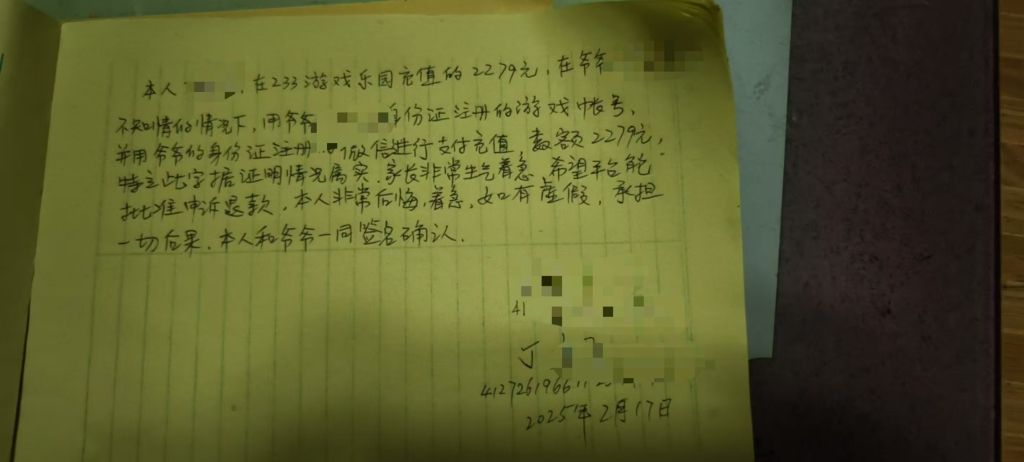 本人 , 在233游戏乐园充值的2279元, 在爷爷
不知情的情况下, 用爷爷 身份证注册的游戏帐号,
并用爷爷的身份证注册 微信进行支付充值, 数额2279元,
特立此字据证明情况属实, 家长非常生气着急, 希望平台能
批准申诉退款, 本人非常后悔, 着急, 如有虚假, 承担
一切后果, 本人和爷爷一同签名确认.
41
412726196611
2025年2月17日